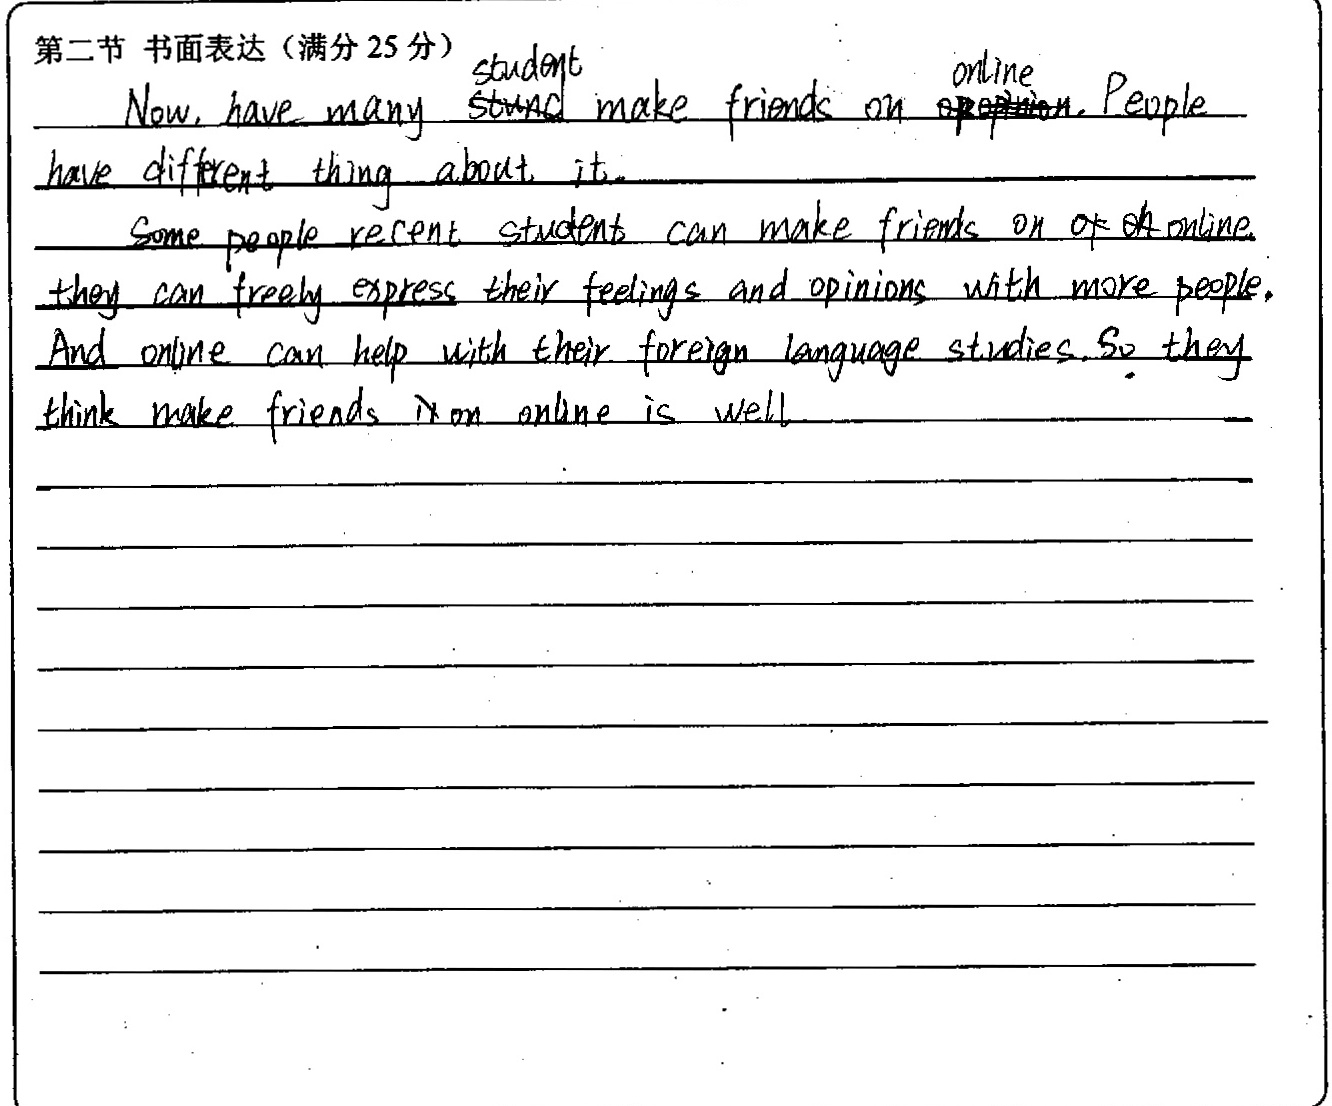 第二节 书面表达（满分 25 分）
student online
Now, have many stund make friends on opopinion. People
have different thing about it.
Some people recent students can make friends on of oh online.
they can freely express their feelings and opinions with more people.
And online can help with their foreign language studies. So they
think make friends in on online is well